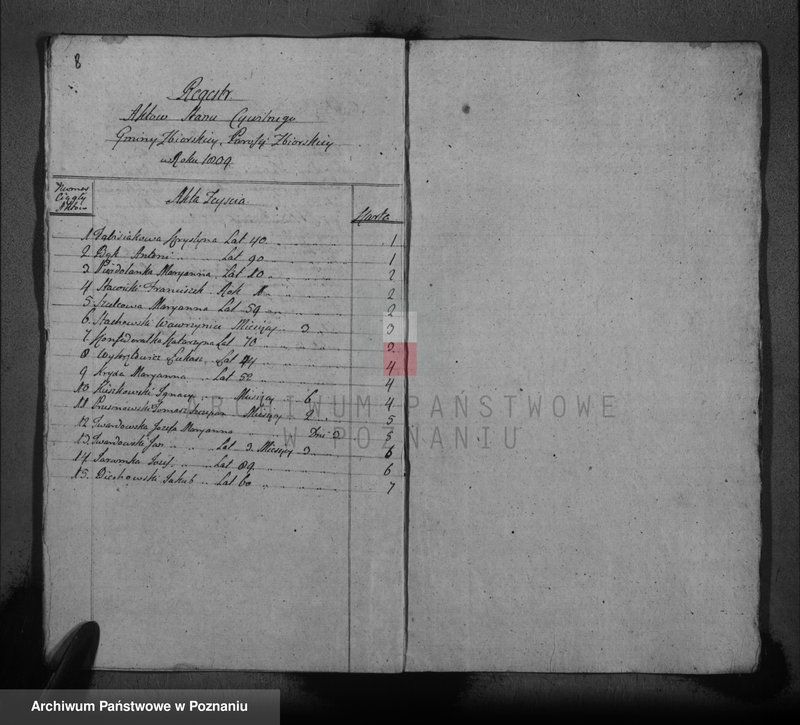 8
Regestr
Aktow Stanu Cywilnego
Gminy Zbiorskiey, Parafij Zbiorskiey
w Roku 1809.
Numer Ciągły Aktow
Akta Zeyscia
Karta
1 Krystyna Lat 40 1
2 Bąk Antoni Lat 90 1
3 Maryanna Lat 10 2
4 Stawicki Franciszek Rok 1 2
5 Maryanna Lat 59 2
6 Stachowski Wawrzyniec Miesięcy 3 3
7 Konfederatka Katarzyna Lat 70 3
8 Łukasz Lat 44 4
9 Kryda Maryanna Lat 52 4
10 Kiszkowski Ignacy Miesięcy 6 4
11 Prusinowski Tomasz Szczepan Miesięcy 2 5
12 Twardowska Jozefa Maryanna Dni 3 5
13 Twardowski Jan Lat 3 Miesięcy 3 6
14 Jozef Lat 89 6
15 Jakub Lat 60 7
ARCHIWUM PAŃSTWOWE
W POZNANIU
Archiwum Państwowe w Poznaniu